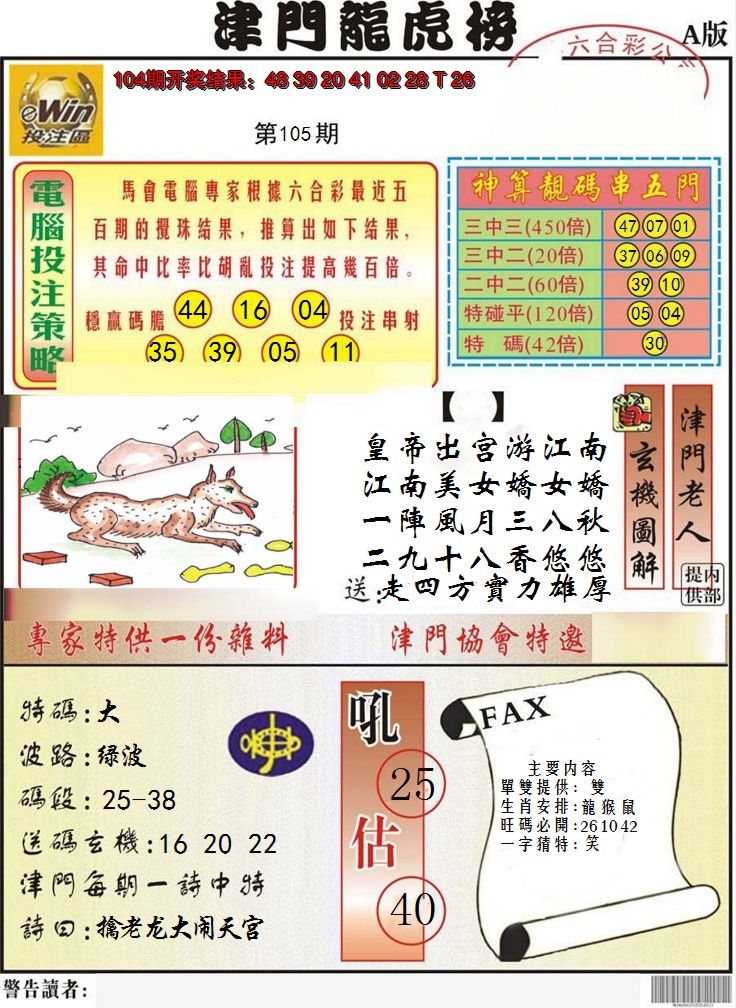 津門龍虎榜
A版
六合彩公
104期开奖结果：48 39 20 41 02 28 T 26
eWin
投注區
第105期
電腦投注策略
馬會電腦專家根據六合彩最近五
百期的攪珠结果，推算出如下结果，
其命中比率比胡亂投注提高幾百倍。
穩贏碼膽 44 16 04 投注串射
35 39 05 11
神算靚碼串五門
三中三(450倍) 47 07 01
三中二(20倍) 37 06 09
二中二(60倍) 39 10
特碰平(120倍) 05 04
特碼(42倍) 30
【 】
皇帝出宮游江南
江南美女嬌女嬌
一陣風月三八秋
二九十八香悠悠
送:走四方實力雄厚
玄機圖解
津門老人
内部提供
專家特供一份雜料
津門協會特邀
特碼:大
波路:绿波
碼段:25-38
送碼玄機:16 20 22
津門每期一詩中特
詩曰:擒老龙大闹天宫
吼 25
估 40
FAX
主要内容
單雙提供：雙
生肖安排:龍猴鼠
旺碼必開:26 10 42
一字猜特：笑
警告讀者：